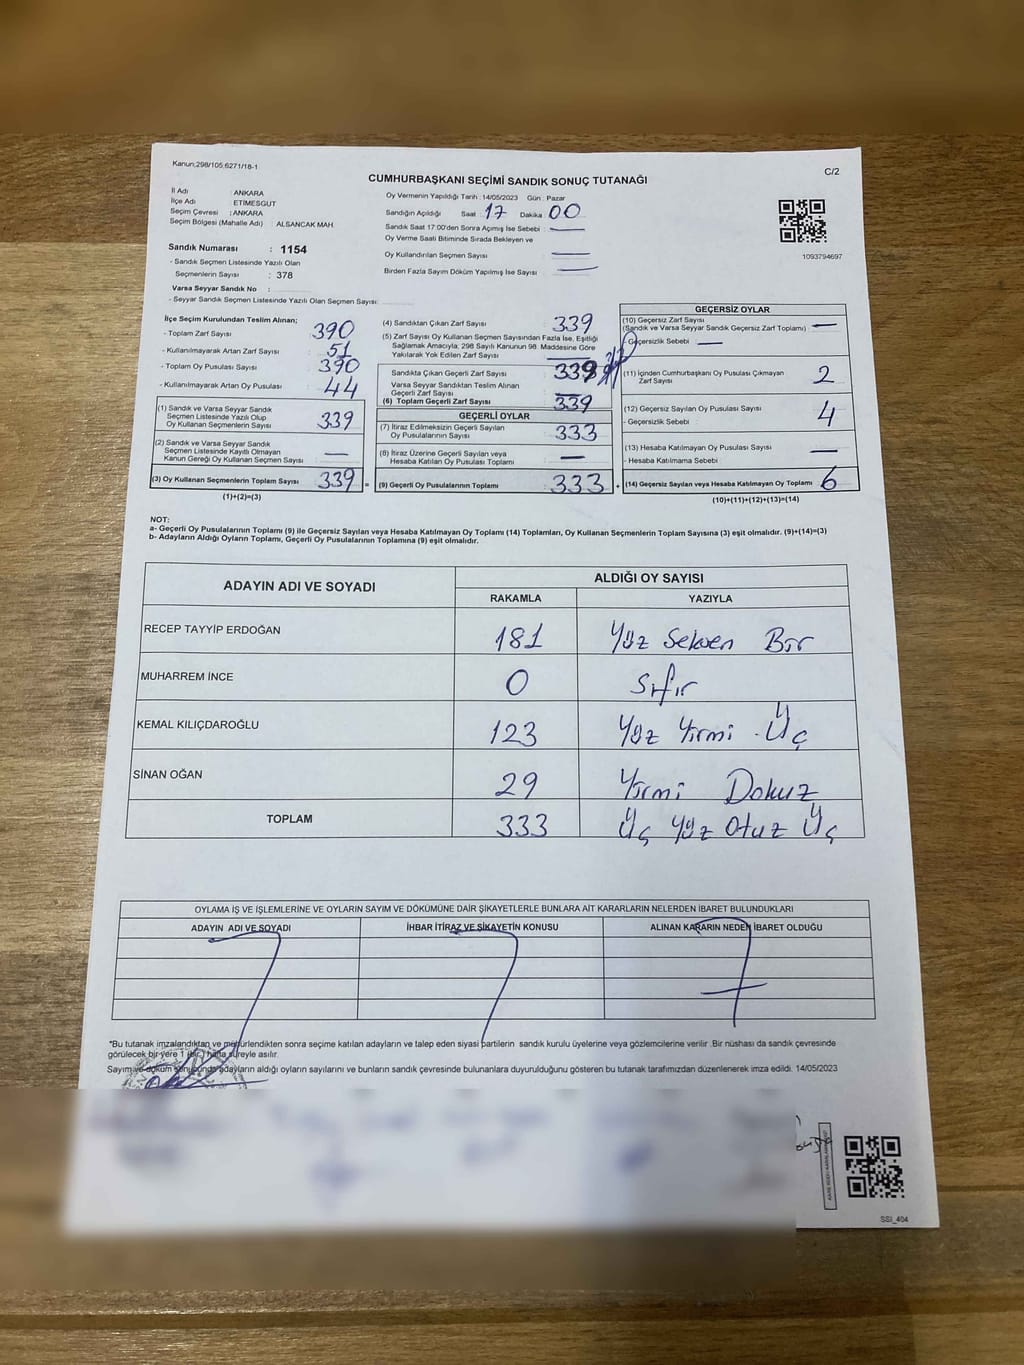 Kanun:298/105;6271/18-1
C/2
CUMHURBAŞKANI SEÇİMİ SANDIK SONUÇ TUTANAĞI
İl Adı : ANKARA
İlçe Adı : ETİMESGUT
Seçim Çevresi : ANKARA
Seçim Bölgesi (Mahalle Adı) : ALSANCAK MAH.
Sandık Numarası : 1154
- Sandık Seçmen Listesinde Yazılı Olan
Seçmenlerin Sayısı : 378
Varsa Seyyar Sandık No :
- Seyyar Sandık Seçmen Listesinde Yazılı Olan Seçmen Sayısı:
Oy Vermenin Yapıldığı Tarih : 14/05/2023 Gün : Pazar
Sandığın Açıldığı Saat : 17 Dakika : 00
Sandık Saat 17:00'den Sonra Açımış İse Sebebi : —
Oy Verme Saati Bitiminde Sırada Bekleyen ve
Oy Kullandırılan Seçmen Sayısı : —
Birden Fazla Sayım Döküm Yapılmış İse Sayısı : —
1093794697
İlçe Seçim Kurulundan Teslim Alınan;
- Toplam Zarf Sayısı : 390
- Kullanılmayarak Artan Zarf Sayısı : 51
- Toplam Oy Pusulası Sayısı : 390
- Kullanılmayarak Artan Oy Pusulası : 44
(1) Sandık ve Varsa Seyyar Sandık
Seçmen Listesinde Yazılı Olup
Oy Kullanan Seçmenlerin Sayısı : 339
(2) Sandık ve Varsa Seyyar Sandık
Seçmen Listesinde Kayıtlı Olmayan
Kanun Gereği Oy Kullanan Seçmen Sayısı : —
(3) Oy Kullanan Seçmenlerin Toplam Sayısı : 339 =
(1)+(2)=(3)
(4) Sandıktan Çıkan Zarf Sayısı : 339
(5) Zarf Sayısı Oy Kullanan Seçmen Sayısından Fazla İse, Eşitliği
Sağlamak Amacıyla; 298 Sayılı Kanunun 98. Maddesine Göre
Yakılarak Yok Edilen Zarf Sayısı : —
Sandıkta Çıkan Geçerli Zarf Sayısı : 339
Varsa Seyyar Sandıktan Teslim Alınan
Geçerli Zarf Sayısı : —
(6) Toplam Geçerli Zarf Sayısı : 339
GEÇERLİ OYLAR
(7) İtiraz Edilmeksizin Geçerli Sayılan
Oy Pusulalarının Sayısı : 333
(8) İtiraz Üzerine Geçerli Sayılan veya
Hesaba Katılan Oy Pusulası Toplamı : —
(9) Geçerli Oy Pusulalarının Toplamı : 333 +
GEÇERSİZ OYLAR
(10) Geçersiz Zarf Sayısı
(Sandık ve Varsa Seyyar Sandık Geçersiz Zarf Toplamı) : —
- Geçersizlik Sebebi : —
(11) İçinden Cumhurbaşkanı Oy Pusulası Çıkmayan
Zarf Sayısı : 2
(12) Geçersiz Sayılan Oy Pusulası Sayısı : 4
- Geçersizlik Sebebi :
(13) Hesaba Katılmayan Oy Pusulası Sayısı : —
- Hesaba Katılmama Sebebi :
(14) Geçersiz Sayılan veya Hesaba Katılmayan Oy Toplamı : 6
(10)+(11)+(12)+(13)=(14)
NOT:
a- Geçerli Oy Pusulalarının Toplamı (9) ile Geçersiz Sayılan veya Hesaba Katılmayan Oy Toplamı (14) Toplamları, Oy Kullanan Seçmenlerin Toplam Sayısına (3) eşit olmalıdır. (9)+(14)=(3)
b- Adayların Aldığı Oyların Toplamı, Geçerli Oy Pusulalarının Toplamına (9) eşit olmalıdır.
ADAYIN ADI VE SOYADI ALDIĞI OY SAYISI
RAKAMLA YAZIYLA
RECEP TAYYİP ERDOĞAN 181 Yüz Seksen Bir
MUHARREM İNCE 0 Sıfır
KEMAL KILIÇDAROĞLU 123 Yüz Yirmi Üç
SİNAN OĞAN 29 Yirmi Dokuz
TOPLAM 333 Üç Yüz Otuz Üç
OYLAMA İŞ VE İŞLEMLERİNE VE OYLARIN SAYIM VE DÖKÜMÜNE DAİR ŞİKAYETLERLE BUNLARA AİT KARARLARIN NELERDEN İBARET BULUNDUKLARI
ADAYIN ADI VE SOYADI İHBAR İTİRAZ VE ŞİKAYETİN KONUSU ALINAN KARARIN NEDEN İBARET OLDUĞU
*Bu tutanak imzalandıktan ve mühürlendikten sonra seçime katılan adayların ve talep eden siyasi partilerin sandık kurulu üyelerine veya gözlemcilerine verilir .Bir nüshası da sandık çevresinde
görülecek bir yere 1 (bir) hafta süreyle asılır.
Sayım ve döküm sonucunda adayların aldığı oyların sayılarını ve bunların sandık çevresinde bulunanlara duyurulduğunu gösteren bu tutanak tarafımızdan düzenlenerek imza edildi. 14/05/2023
SSI_404